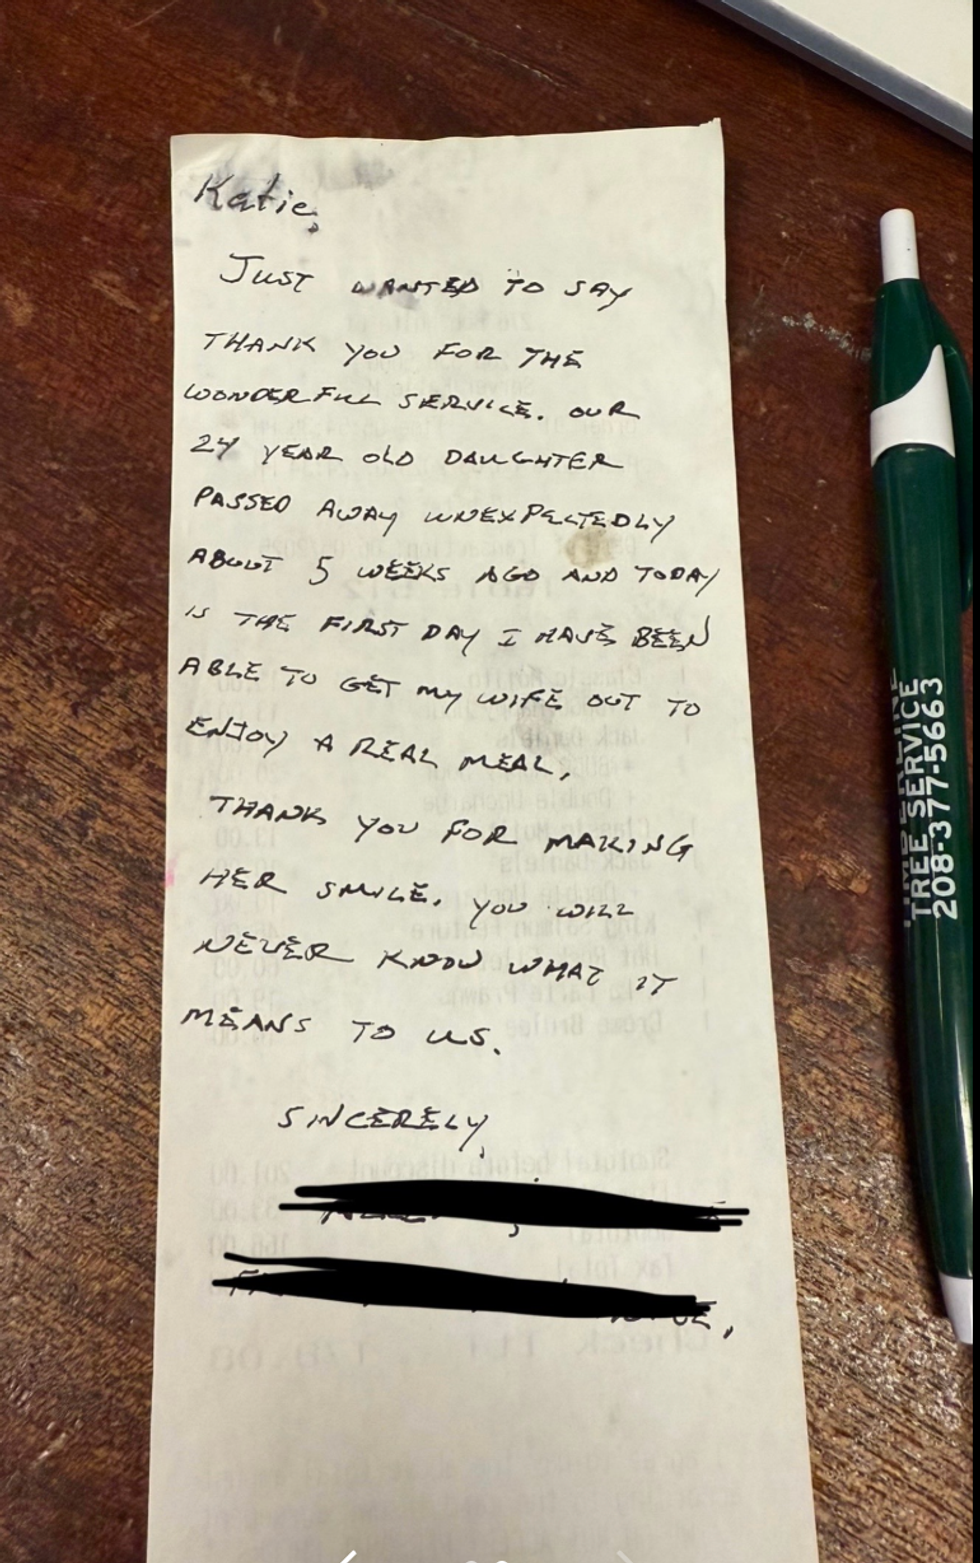 Katie,
JUST WANTED TO SAY
THANK YOU FOR THE
WONDERFUL SERVICE. OUR
24 YEAR OLD DAUGHTER
PASSED AWAY UNEXPECTEDLY
ABOUT 5 WEEKS AGO AND TODAY
IS THE FIRST DAY I HAVE BEEN
ABLE TO GET MY WIFE OUT TO
ENJOY A REAL MEAL,
THANK YOU FOR MAKING
HER SMILE. YOU WILL
NEVER KNOW WHAT IT
MEANS TO US.
SINCERELY,
TREE SERVICE
208-377-5663